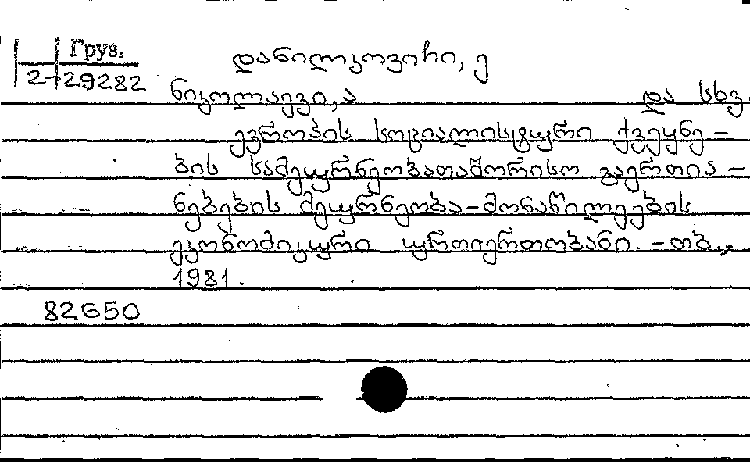 Груз.
2-29282
დანილკოვიჩი, ე
ნიკოლაევი, ა და სხვ.
ევროპის სოციალისტური ქვეყნე-
ბის სამეურნეობათაშორისო გაერთია-
ნებების მეურნეობა-მონაწილეების
ეკონომიკური ურთიერთობანი. - თბ.,
1981.
82650